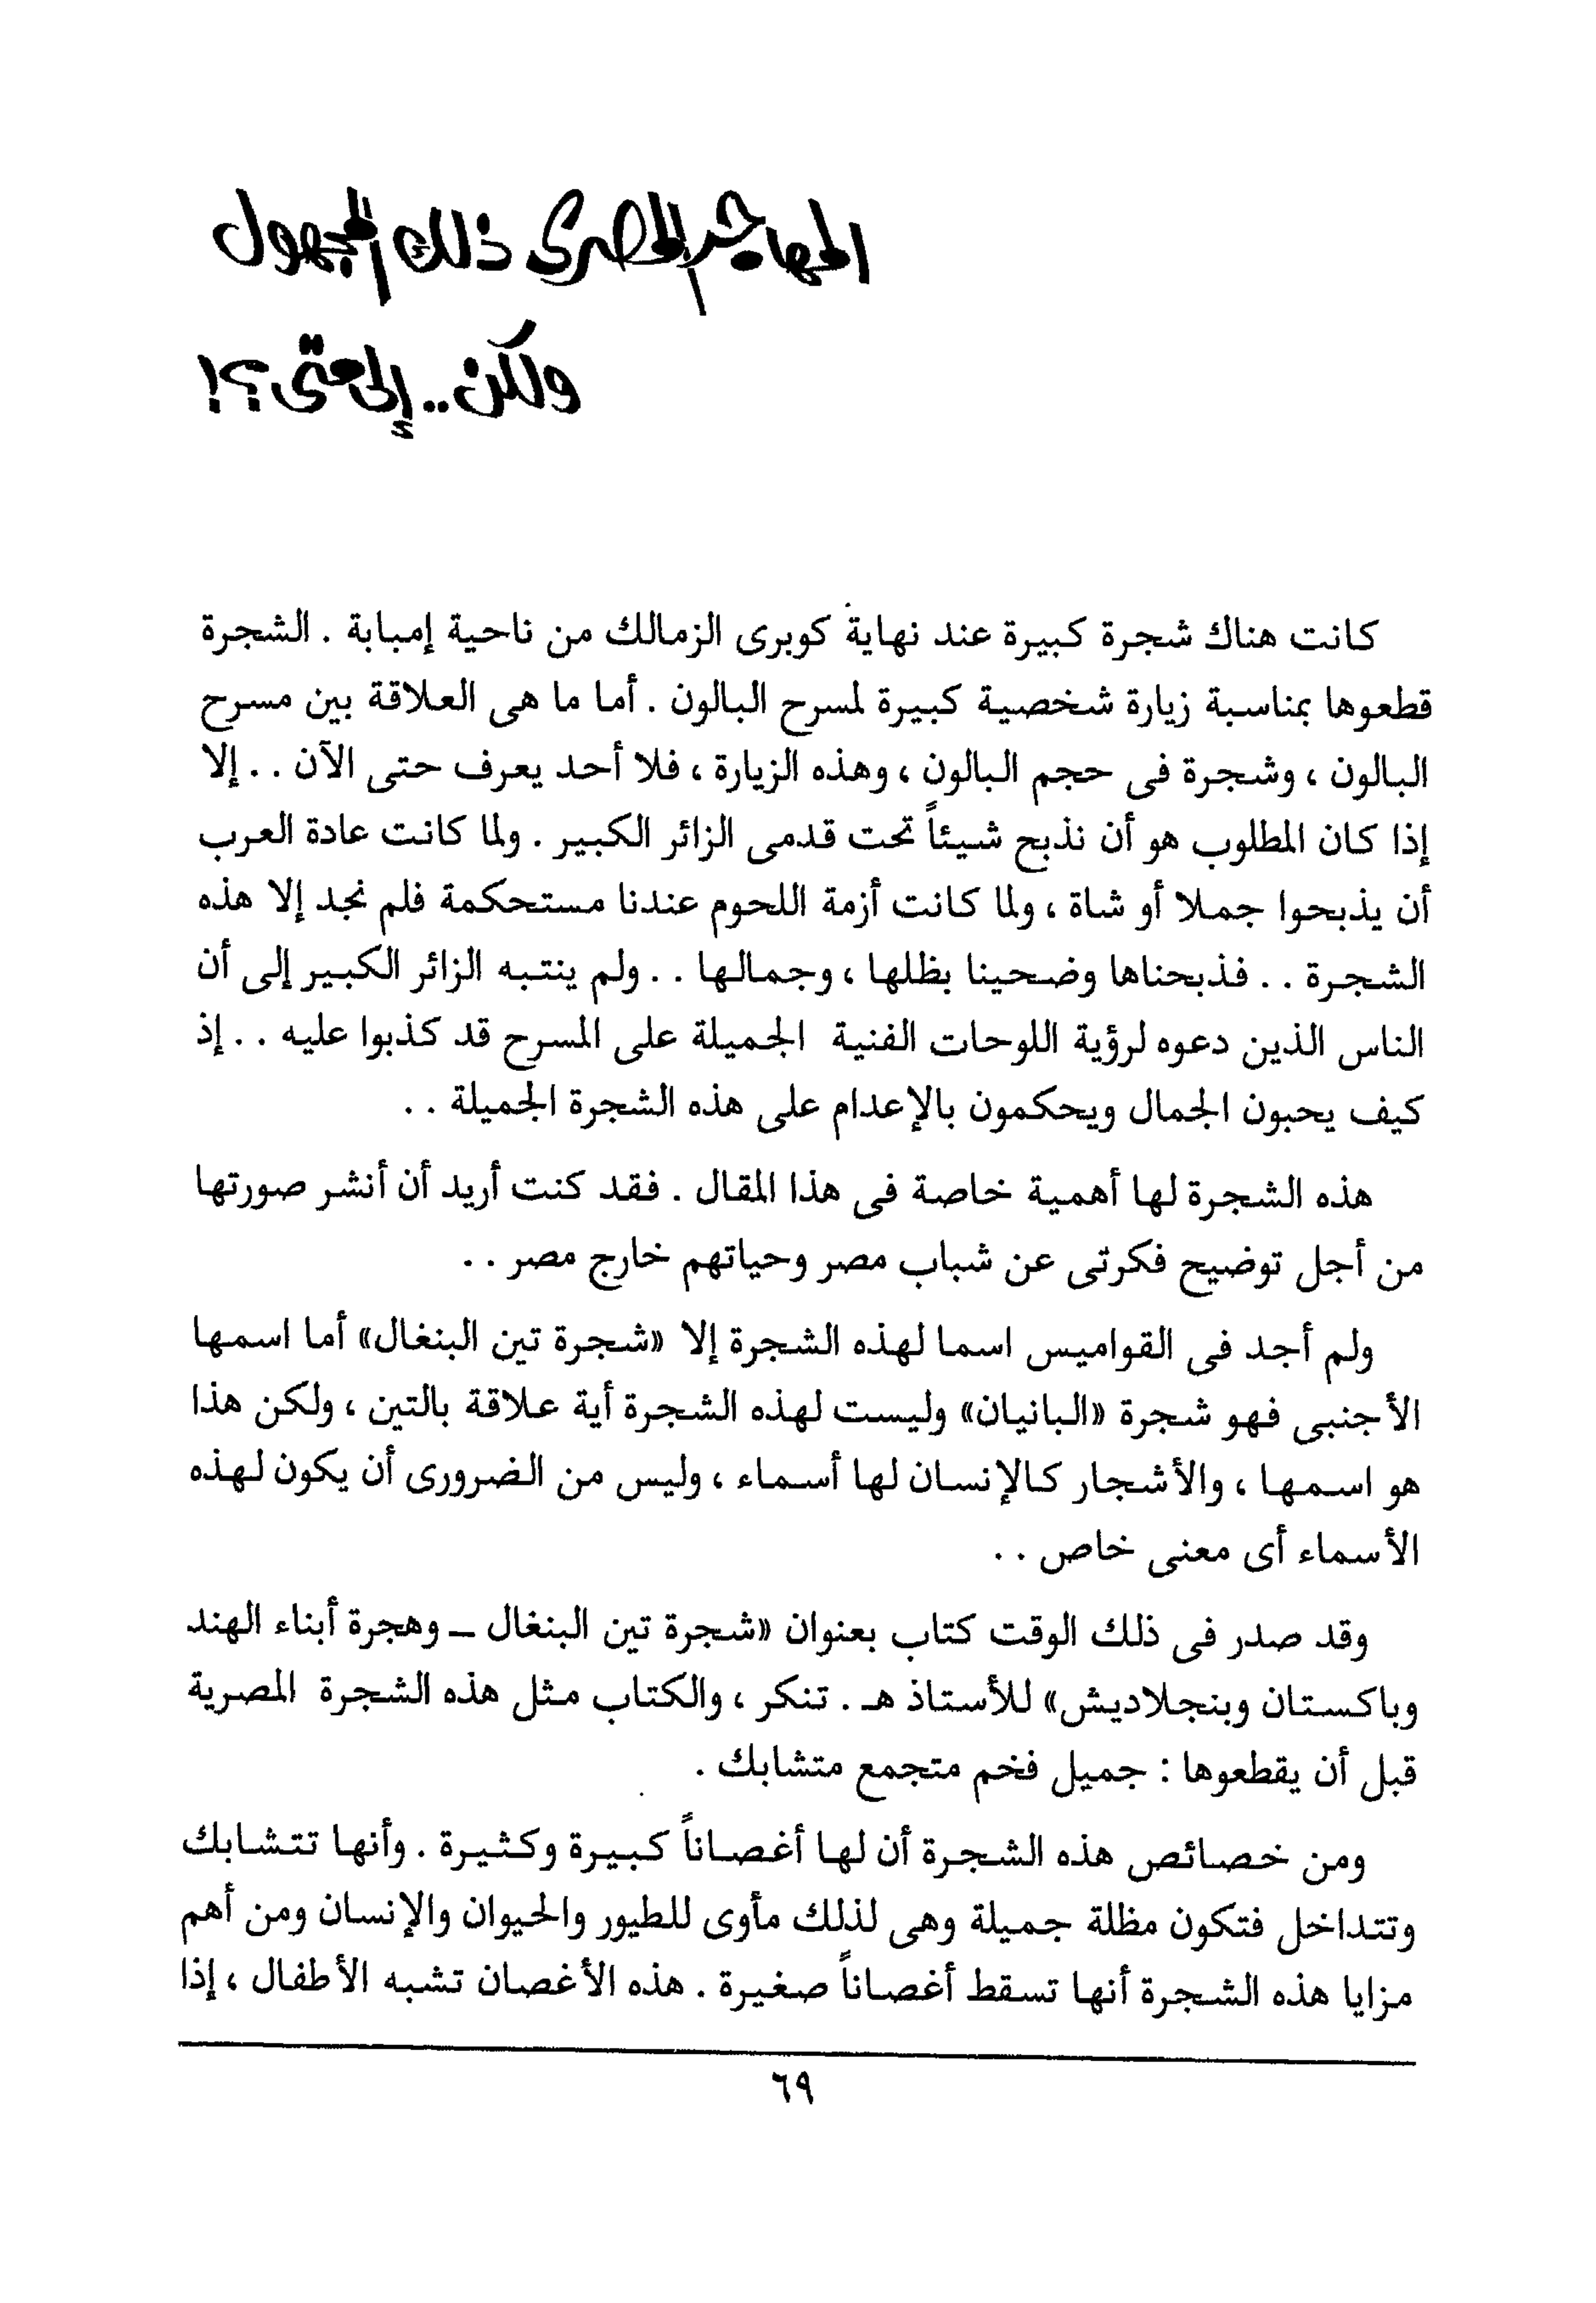 المهاجر المصرى ذلك المجهول
ولكن .. إلى متى ؟!
كانت هناك شجرة كبيرة عند نهاية كوبرى الزمالك من ناحية إمبابة . الشجرة
قطعوها بمناسبة زيارة شخصية كبيرة لمسرح البالون . أما ما هى العلاقة بين مسرح
البالون ، وشجرة فى حجم البالون ، وهذه الزيارة ، فلا أحد يعرف حتى الآن . . إلا
إذا كان المطلوب هو أن نذبح شيئاً تحت قدمى الزائر الكبير . ولما كانت عادة العرب
أن يذبحوا جملا أو شاة ، ولما كانت أزمة اللحوم عندنا مستحكمة فلم نجد إلا هذه
الشجرة . . فذبحناها وضحينا بظلها ، وجمالها . . ولم ينتبه الزائر الكبير إلى أن
الناس الذين دعوه لرؤية اللوحات الفنية الجميلة على المسرح قد كذبوا عليه . . إذ
كيف يحبون الجمال ويحكمون بالإعدام على هذه الشجرة الجميلة . .
هذه الشجرة لها أهمية خاصة فى هذا المقال . فقد كنت أريد أن أنشر صورتها
من أجل توضيح فكرتى عن شباب مصر وحياتهم خارج مصر . .
ولم أجد فى القواميس اسما لهذه الشجرة إلا «شجرة تين البنغال» أما اسمها
الأجنبى فهو شجرة «البانيان» وليست لهذه الشجرة أية علاقة بالتين ، ولكن هذا
هو اسمها ، والأشجار كالإنسان لها أسماء ، وليس من الضرورى أن يكون لهذه
الأسماء أى معنى خاص . .
وقد صدر فى ذلك الوقت كتاب بعنوان «شجرة تين البنغال ــ وهجرة أبناء الهند
وباكستان وبنجلاديش» للأستاذ هـ . تنكر ، والكتاب مثل هذه الشجرة المصرية
قبل أن يقطعوها : جميل فخم متجمع متشابك .
ومن خصائص هذه الشجرة أن لها أغصاناً كبيرة وكثيرة . وأنها تتشابك
وتتداخل فتكون مظلة جميلة وهى لذلك مأوى للطيور والحيوان والإنسان ومن أهم
مزايا هذه الشجرة أنها تسقط أغصاناً صغيرة . هذه الأغصان تشبه الأطفال ، إذا
٦٩